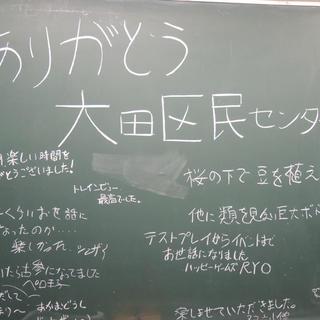 ありがとう
大田区民センター
楽しい時間を
がとうございました!
トレインビュー
最高でした。
桜の下で豆を植え
くらいお世話に
なったのか‥‥
楽しかった
他に類を見ない巨大ボ
テストプレイからイベントまで
お世話になりました
ハッピーゲームズRYO
いたら古参になってました
ペロ王子
楽しませていただきました。